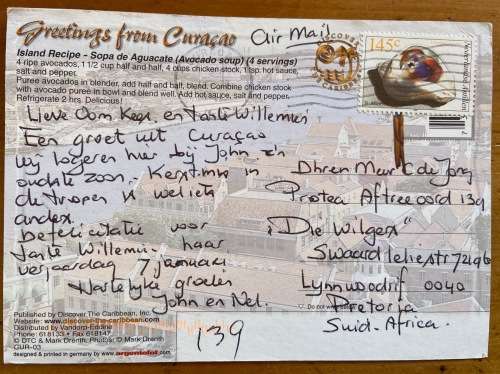 Greetings from Curaçao
Air Mail
Island Recipe - Sopa de Aguacate (Avocado soup) (4 servings)
4 ripe avocados, 1 1/2 cup half and half, 4 cups chicken stock, 1 tsp. hot sauce,
salt and pepper.
Puree avocados in blender, add half and half, blend. Combine chicken stock
with avocado puree in bowl and blend well. Add hot sauce, salt and pepper.
Refrigerate 2 hrs. Delicious!
145c
Lieve Oom Kees en tante Willemien
Een groet uit Curaçao
wij logeren hier bij John z'n
oudste zoon. Kerstmis in
de tropen is wel iets
anders.
Befelicitatie voor
tante Willemien haar
verjaardag 7 januari
Hartelyke groeten
John en Nel.
Dhr en Mevr C de Jong
Protea Aftreeoord 139
"Die Wilgers"
Swaardleliestr 729b
Lynnwoodrif 0040
Pretoria
Suid-Africa.
139
Published by Discover The Caribbean, Inc.
Website: www.discover-the-caribbean.com
Distributed by Vandorp-Eddine
Phone: 618133 • Fax 618147
© DTC & Mark Drenth, Photo: © Mark Drenth
CUR-03
designed & printed in germany by www.argusmobil.com